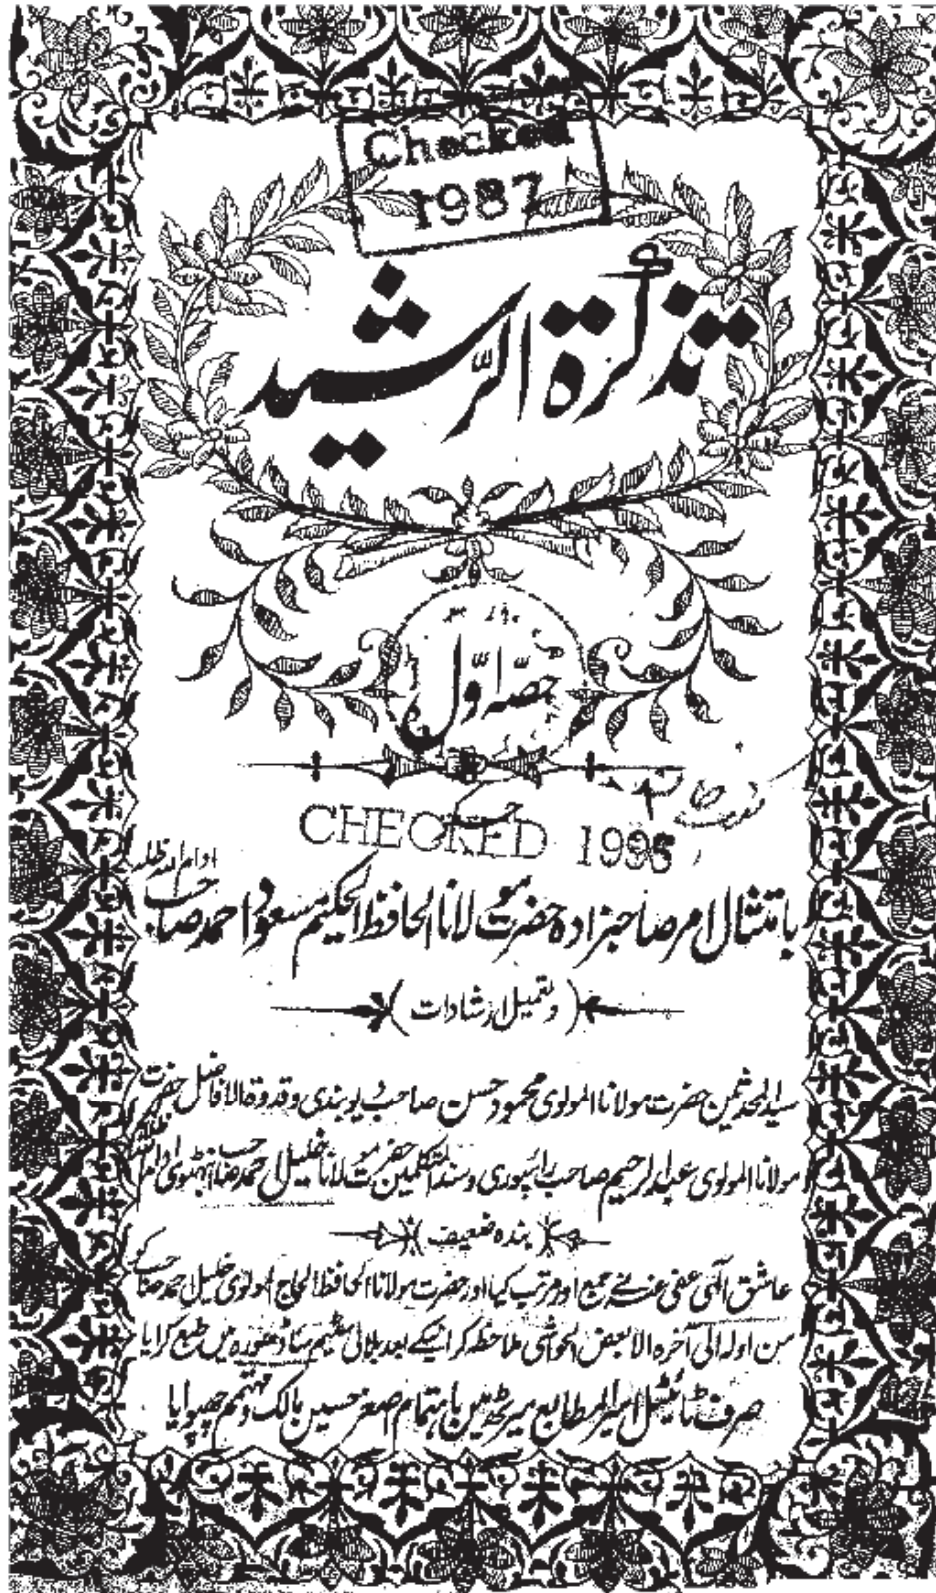 Checked
1987
تذکرۃ الرّشید
حصّہ اوّل
CHECKED 1995
ادام اللہ ظلہ
بامتثال امر صاحبزادہ حضرت مولانا الحافظ الحکیم مسعود احمد صاحب
(وبتعمیل ارشادات)
سید المحدثین حضرت مولانا المولوی محمود حسن صاحب دیوبندی وقدوۃ الافاضل حضرت
مولانا المولوی عبدالرحیم صاحب رائپوری وسند المتکلمین حضرت مولانا خلیل احمد صاحب انبہٹوی ادام اللہ
بندہ ضعیف
عاشق الٰہی عفی عنہ نے جمع اور مرتب کیا اور حضرت مولانا الحافظ الحاج المولوی خلیل احمد صاحب کو
من اولہ الی آخرہ الا بعض الحواشی ملاحظہ کرانیکے بعد بلالی سٹیم ساڈھورہ میں طبع کرایا
صرف ٹائیٹل اسیر المطابع میرٹھ میں باہتمام اصغر حسین مالک و مہتمم چھپوایا